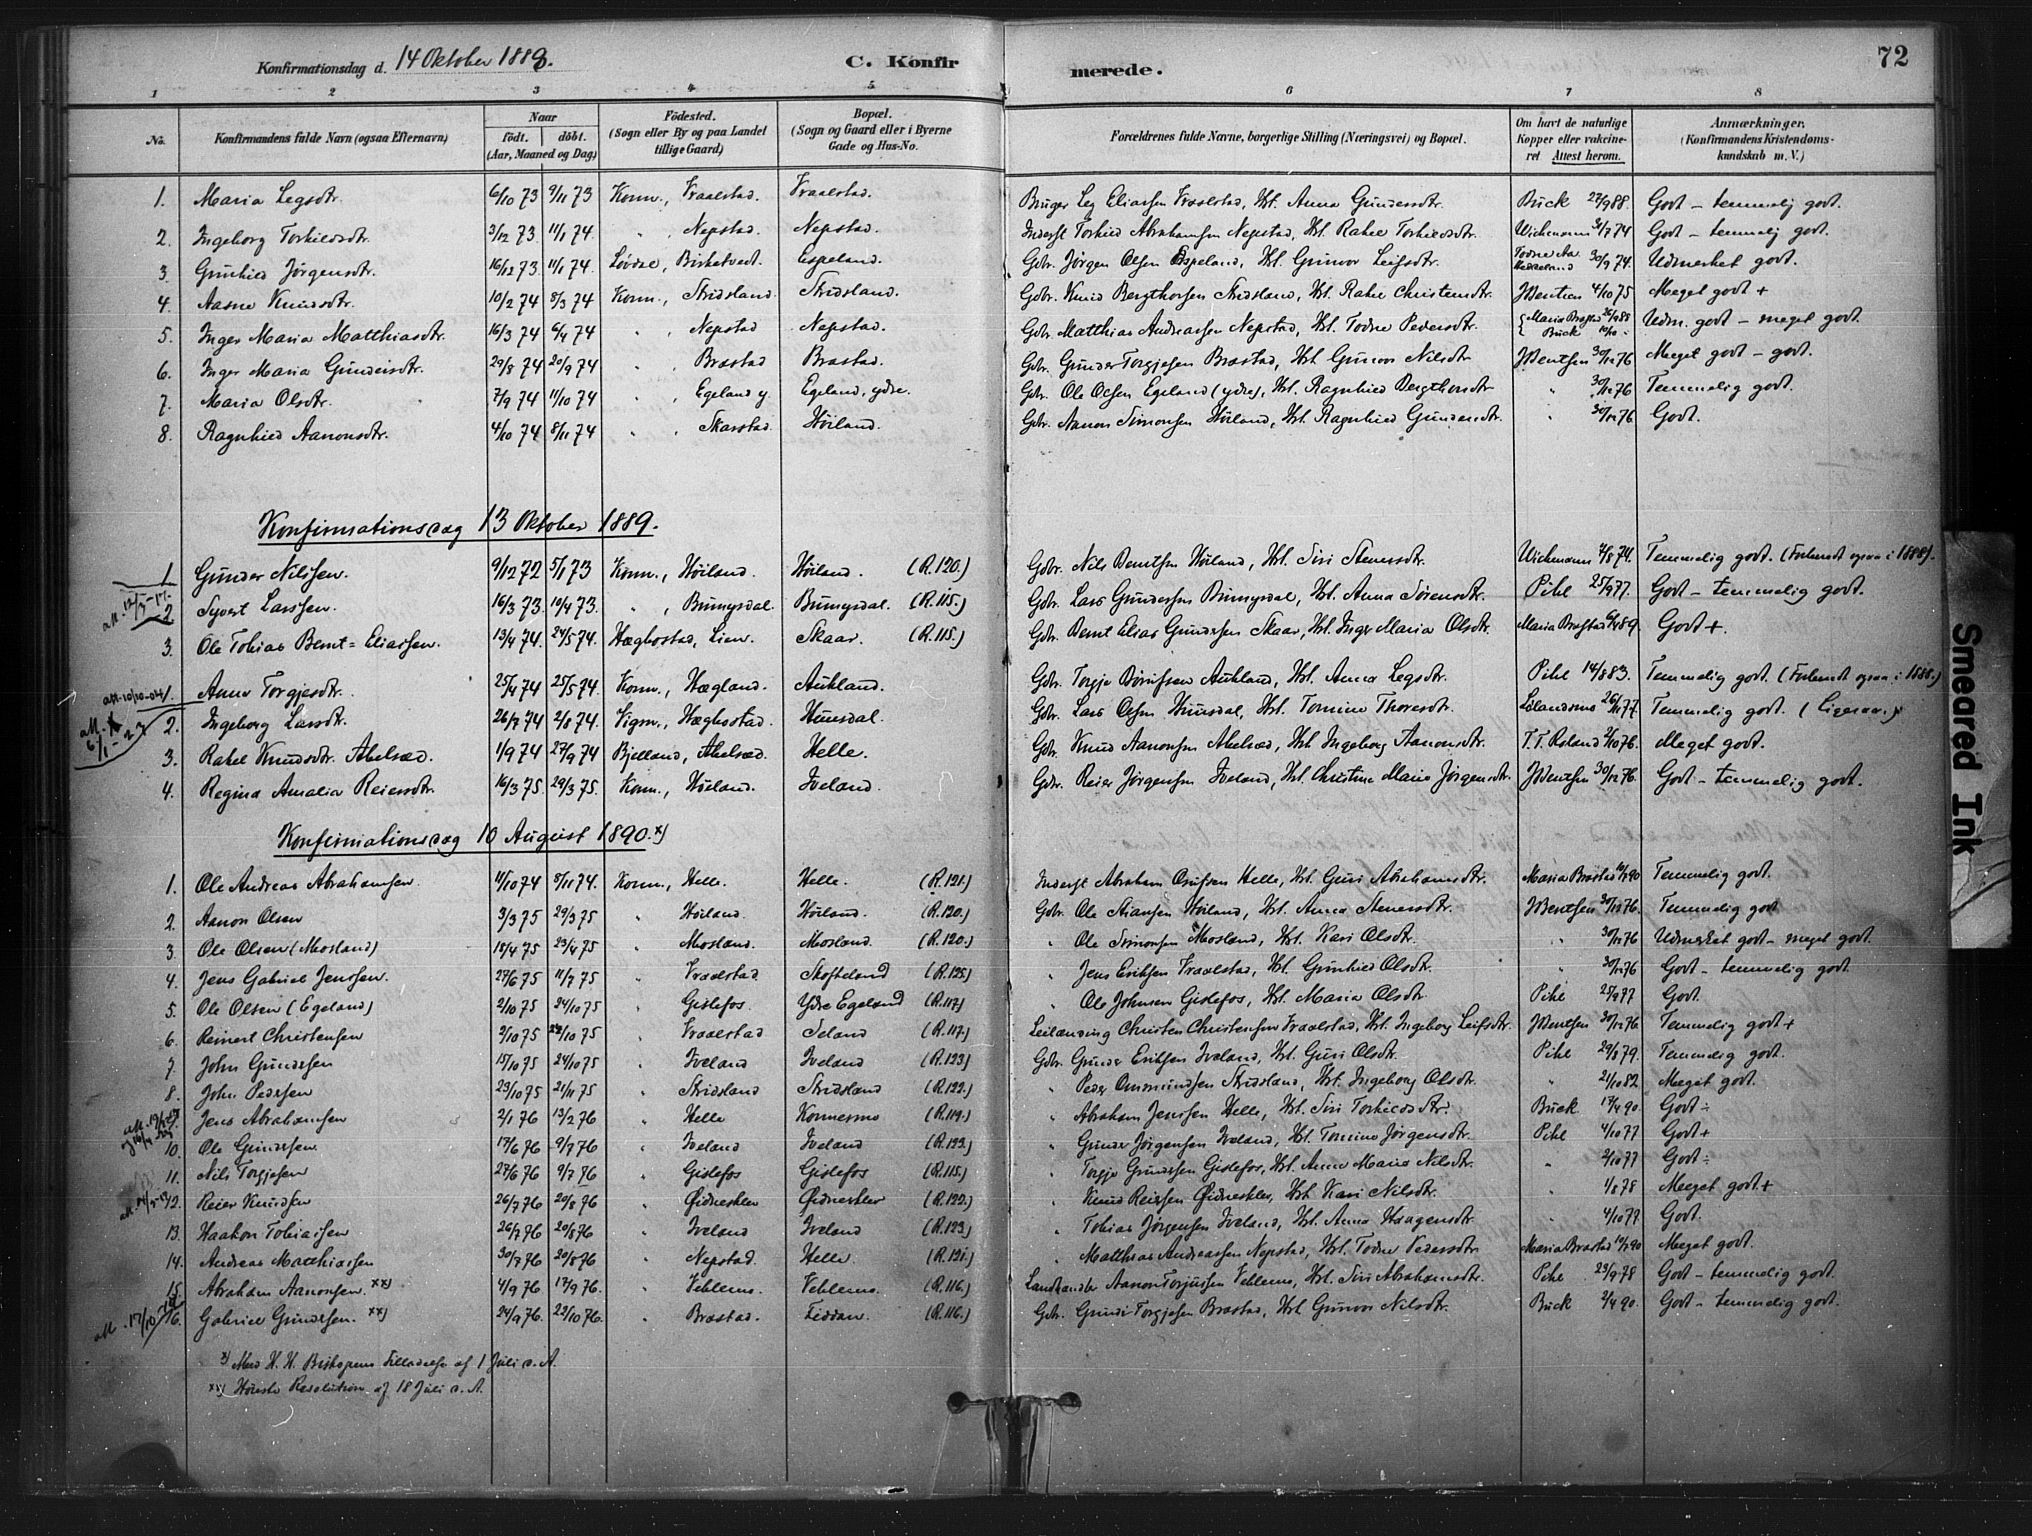 Konfirmationsdag d. 14 Oktober 1888. C. Konfirmerede. 72
1 2 3 4 5 6 7 8
No. Konfirmandens fulde Navn (ogsaa Efternavn) Naar födt. döbt. (Aar, Maaned og Dag) Födested. (Sogn eller By og paa Landet tillige Gaard.) Bopæl. (Sogn og Gaard eller i Byerne Gade og Hus-No. Forældrenes fulde Navne, borgerlige Stilling (Næringsvei) og Bopæl. Om havt de naturlige Kopper eller vakcineret Attest herom. Anmærkninger. (Konfirmandens Kristendomskundskab m. V.)
1. Maria Legsdtr. 6/10 73 9/11 73 Konm., Vraalstad. Vraalstad. Bruger Leg Eliassen Vraalstad, Hst. Anna Gundersdtr. Buck 27/9 88. Godt – temmelig godt.
2. Ingeborg Torkildsdtr. 3/12 73. 11/1 74. " , Nepstad. Nepstad. Inderst Torkild Abrahamsen Nepstad, Hst. Rahel Torkildsdtr. Wichmann 31/7 74 Godt – temmelig godt.
3 Gunhild Jörgensdtr. 16/12 73. 11/1 74. Lövdal, Birketvedt. Espeland. Gdbr. Jörgen Olsen Espeland, Hst. Gunvor Leifsdtr. 30/9 74. Udmerket godt.
4. Aasne Knudsdtr. 10/2 74 8/3 74 Konm., Stridsland. Stridsland. Gdbr. Knud Bergthorsen Stridsland, Hst. Rahel Christensdtr. JBentsen 4/10 75 Meget godt +
5. Inger Maria Matthiasdtr. 16/3 74 6/4 74 " , Nepstad Nepstad. Gdbr. Matthias Andreassen Nepstad, Hst. Todne Pedersdtr. Maria Brastad 26/9 88 Buck 10/10 " Udm. godt – meget godt.
6. Inger Maria Gundersdtr. 29/8 74 20/9 74 " , Brastad Brastad. Gdbr. Gunder Torgjesen Brastad, Hst. Gunvor Nilsdtr. JBentsen 30/12 76 Meget godt – godt.
7. Maria Olsdtr. 7/9 74 11/10 74 " , Egeland y. Egeland, ydre. Gdbr. Ole Olsen Egeland (ydre), Hst. Ragnhild Bergthorsdtr. " 30/12 76 Temmelig godt.
8. Ragnhild Aanonsdtr. 4/10 74 8/11 74 " , Skarstad. Höiland. Gdbr. Aanon Simonsen Höiland, Hst. Ragnhild Gundersdtr. " 30/12 76 Godt.
Konfirmationsdag 13 Oktober 1889.
1 Gunder Nilssen. 9/12 72 5/1 73 Konm., Höiland. Höiland. (R. 120.) Gdbr. Nils Berntsen Höiland, Hst. Siri Stenersdtr. Wichmann 7/8 74. Temmelig godt. (Forberedt ogsaa i 1888).
2 Syvert Larssen. 16/3 73. 10/4 73. " , Bumysdal. Bumysdal. (R. 115.) Gdbr. Lars Gundersen Bumysdal, Hst. Anna Sörensdtr. Pihl 25/9 77. Godt – temmelig godt.
3. Ole Tobias Bernt-Eliassen. 13/4 74 24/5 74. Hægbostad, Lien. Skaar. (R. 115.) Gdbr. Bernt Elias Gundersen Skaar, Hst. Inger Maria Olsdtr. Maria Brastad 6/9 89. Godt +.
att. 10/10-04 1. Anna Torgjesdtr. 25/4 74 25/5 74. Konm., Hægland. Aukland. Gdbr. Torgje Börufsen Aukland, Hst. Anna Legsdtr. Pihl 14/8 83. Temmelig godt. (Forberedt ogsaa i 1888.)
2. Ingeborg Larsdtr. 26/7 74 2/8 74. Vigm., Hægbostad. Hunsdal. Gdbr. Lars Olsen Hunsdal, Hst. Tomine Thoresdtr. Leilandsmo 26/11 77. Temmelig godt.
3. Rahel Knudsdtr. Abelsæd. 1/9 74 27/9 74 Bjelland, Abelsæd. Helle. Gdbr. Knud Aanonsen Abelsæd, Hst. Ingeborg Aanonsdtr. T. T. Roland 2/10 76. Meget godt.
4. Regina Amalia Reiersdtr. 16/3 75. 29/3 75. Konm., Höiland. Iveland. Gdbr. Reier Jörgensen Iveland, Hst. Christine Marie Jörgensdtr. JBentsen 30/12 76. Godt – temmelig godt.
Konfirmationsdag 10 August 1890. x)
1. Ole Andreas Abrahamsen. 11/10 74 8/11 74. Konm., Helle. Helle. (R. 121.) Inderst Abraham Osufsen Helle, Hst. Guri Abrahamsdtr. Maria Brastad 10/7 90 Temmelig godt.
2. Aanon Olsen 3/3 75 29/3 75 " Höiland. Höiland. (R. 120.) Gdbr. Ole Stiansen Höiland, Hst. Anna Stenersdtr. JBentsen 30/12 76. Temmelig godt
3. Ole Olsen (Mosland) 18/4 75 23/4 75 " Mosland. Mosland. (R. 120.) " Ole Simonsen Mosland, Hst. Kari Olsdtr. " 30/12 76 Udmerket godt – meget godt.
4. Jens Gabriel Jenssen. 27/6 75 11/7 75 " Vraalstad Skofteland (R. 125.) " Jens Eriksen Vraalstad, Hst. Gunhild Olsdtr. " 30/12 76 Godt – temmelig godt.
5. Ole Olsen (Egeland) 2/10 75 24/10 75 " Gislefos Ydre Egeland (R. 117) " Ole Johnsen Gislefos, Hst. Maria Olsdtr. Pihl 25/9 77 Godt.
6. Reinert Christensen 2/10 75 24/10 75 " Vraalstad Seland (R. 117.) Leilænding Christen Christensen Vraalstad, Hst. Ingeborg Leifsdtr. JBentsen 30/12 76 Temmelig godt +
7. John Gundersen 15/10 75 24/10 75 " Iveland Iveland (R. 123) Gdbr. Gunder Eriksen Iveland, Hst. Guri Olsdtr. Pihl 29/8 79. Temmelig godt.
8. John Pedersen 23/10 75 21/11 75 " Stridsland Stridsland (R. 122.) " Peder Ommundsen Stridsland, Hst. Ingeborg Olsdtr. " 21/10 82 Meget godt.
Jens Abrahamsen 2/1 76 13/2 76 " Helle Konnesmo (R. 119.) " Abraham Jenssen Helle, Hst. Siri Torkildsdtr. Buck 17/4 90. Godt ÷
10. Ole Gundersen 17/6 76 9/7 76 " Iveland Iveland (R. 123.) " Gunder Jörgensen Iveland, Hst. Tomine Jörgensdtr. Pihl 4/10 77 Godt +
11. Nils Torgjesen 27/6 76 9/7 76 " Gislefos Gislefos (R. 115.) " Torgje Gundersen Gislefos, Hst. Anna Maria Nilsdtr. " 2/10 77 Godt ÷
12. Reier Knudsen 26/7 76 20/8 76 " Öidnesklev Öidneskler (R. 122.) " Knud Reiersen Öidneskler, Hst. Kari Nilsdtr. " 1/8 78 Meget godt +
13. Haakon Tobiassen 26/7 76 20/8 76 " Iveland Iveland (R. 123.) " Tobias Jörgensen Iveland, Hst. Anna Haagensdtr. " 4/10 77 Godt.
14. Andreas Matthiassen 30/7 76 20/8 76 " Nepstad. Helle (R. 121.) " Matthias Andreassen Nepstad, Hst. Todne Pedersdtr. Maria Brastad 10/7 90 Meget godt.
15. Abraham Aanonsen. xx) 4/9 76 17/9 76. " Veblemo. Veblemo. (R. 116.) Landhandler Aanon Torjussen Veblemo, Hst. Siri Abrahamsdtr. Pihl 23/9 78 Godt – temmelig godt.
16. Gabriel Gundersen. xx) 24/9 76. 22/10 76. " Brastad. Feddan. (R. 116.) Gdbr. Gunder Torgjesen Brastad, Hst. Gunvor Nilsdtr. Buck 2/4 90. Godt – temmelig godt.
x) Med H. H. Biskopens Tilladelse af 1 Juli d. A.
xx) Höieste Resolution af 18 Juli d. A.
Smeared Ink